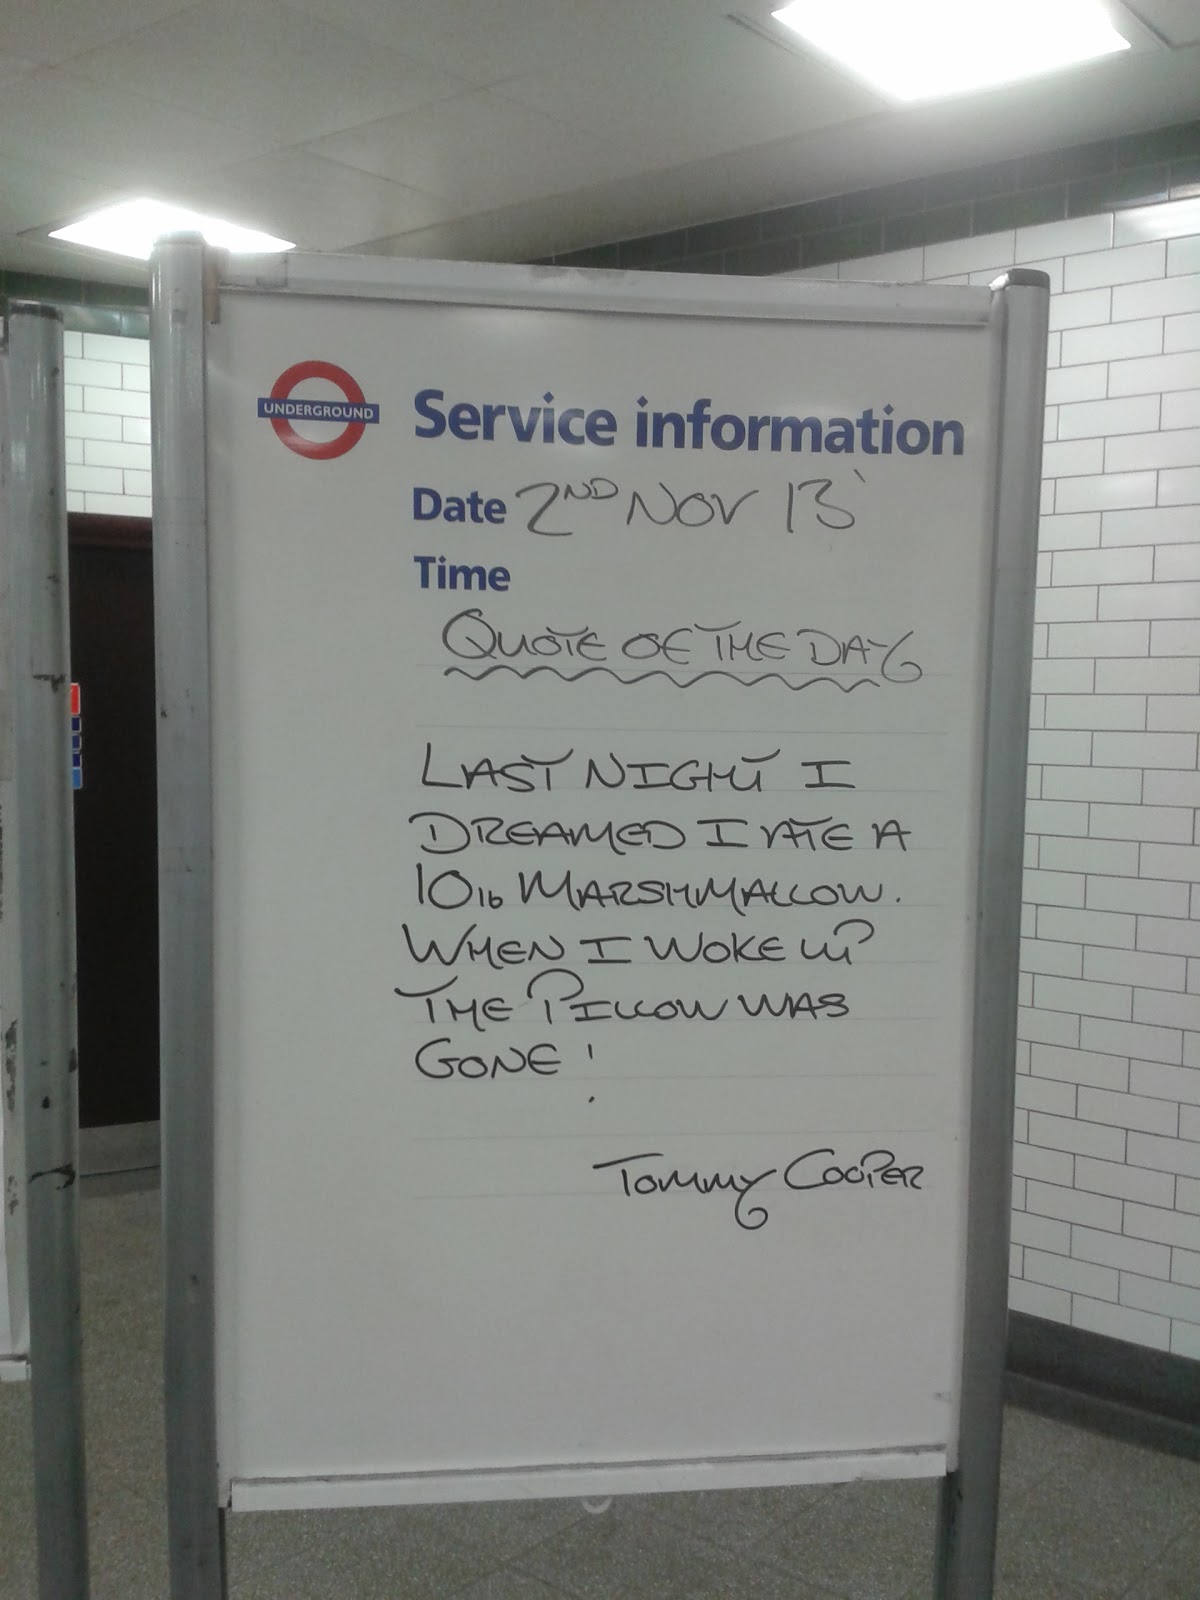 UNDERGROUND
Service information
Date 2ND NOV 13'
Time
QUOTE OF THE DAY
LAST NIGHT I
DREAMED I ATE A
10lb MARSHMALLOW.
WHEN I WOKE UP
THE PILLOW WAS
GONE!
TOMMY COOPER